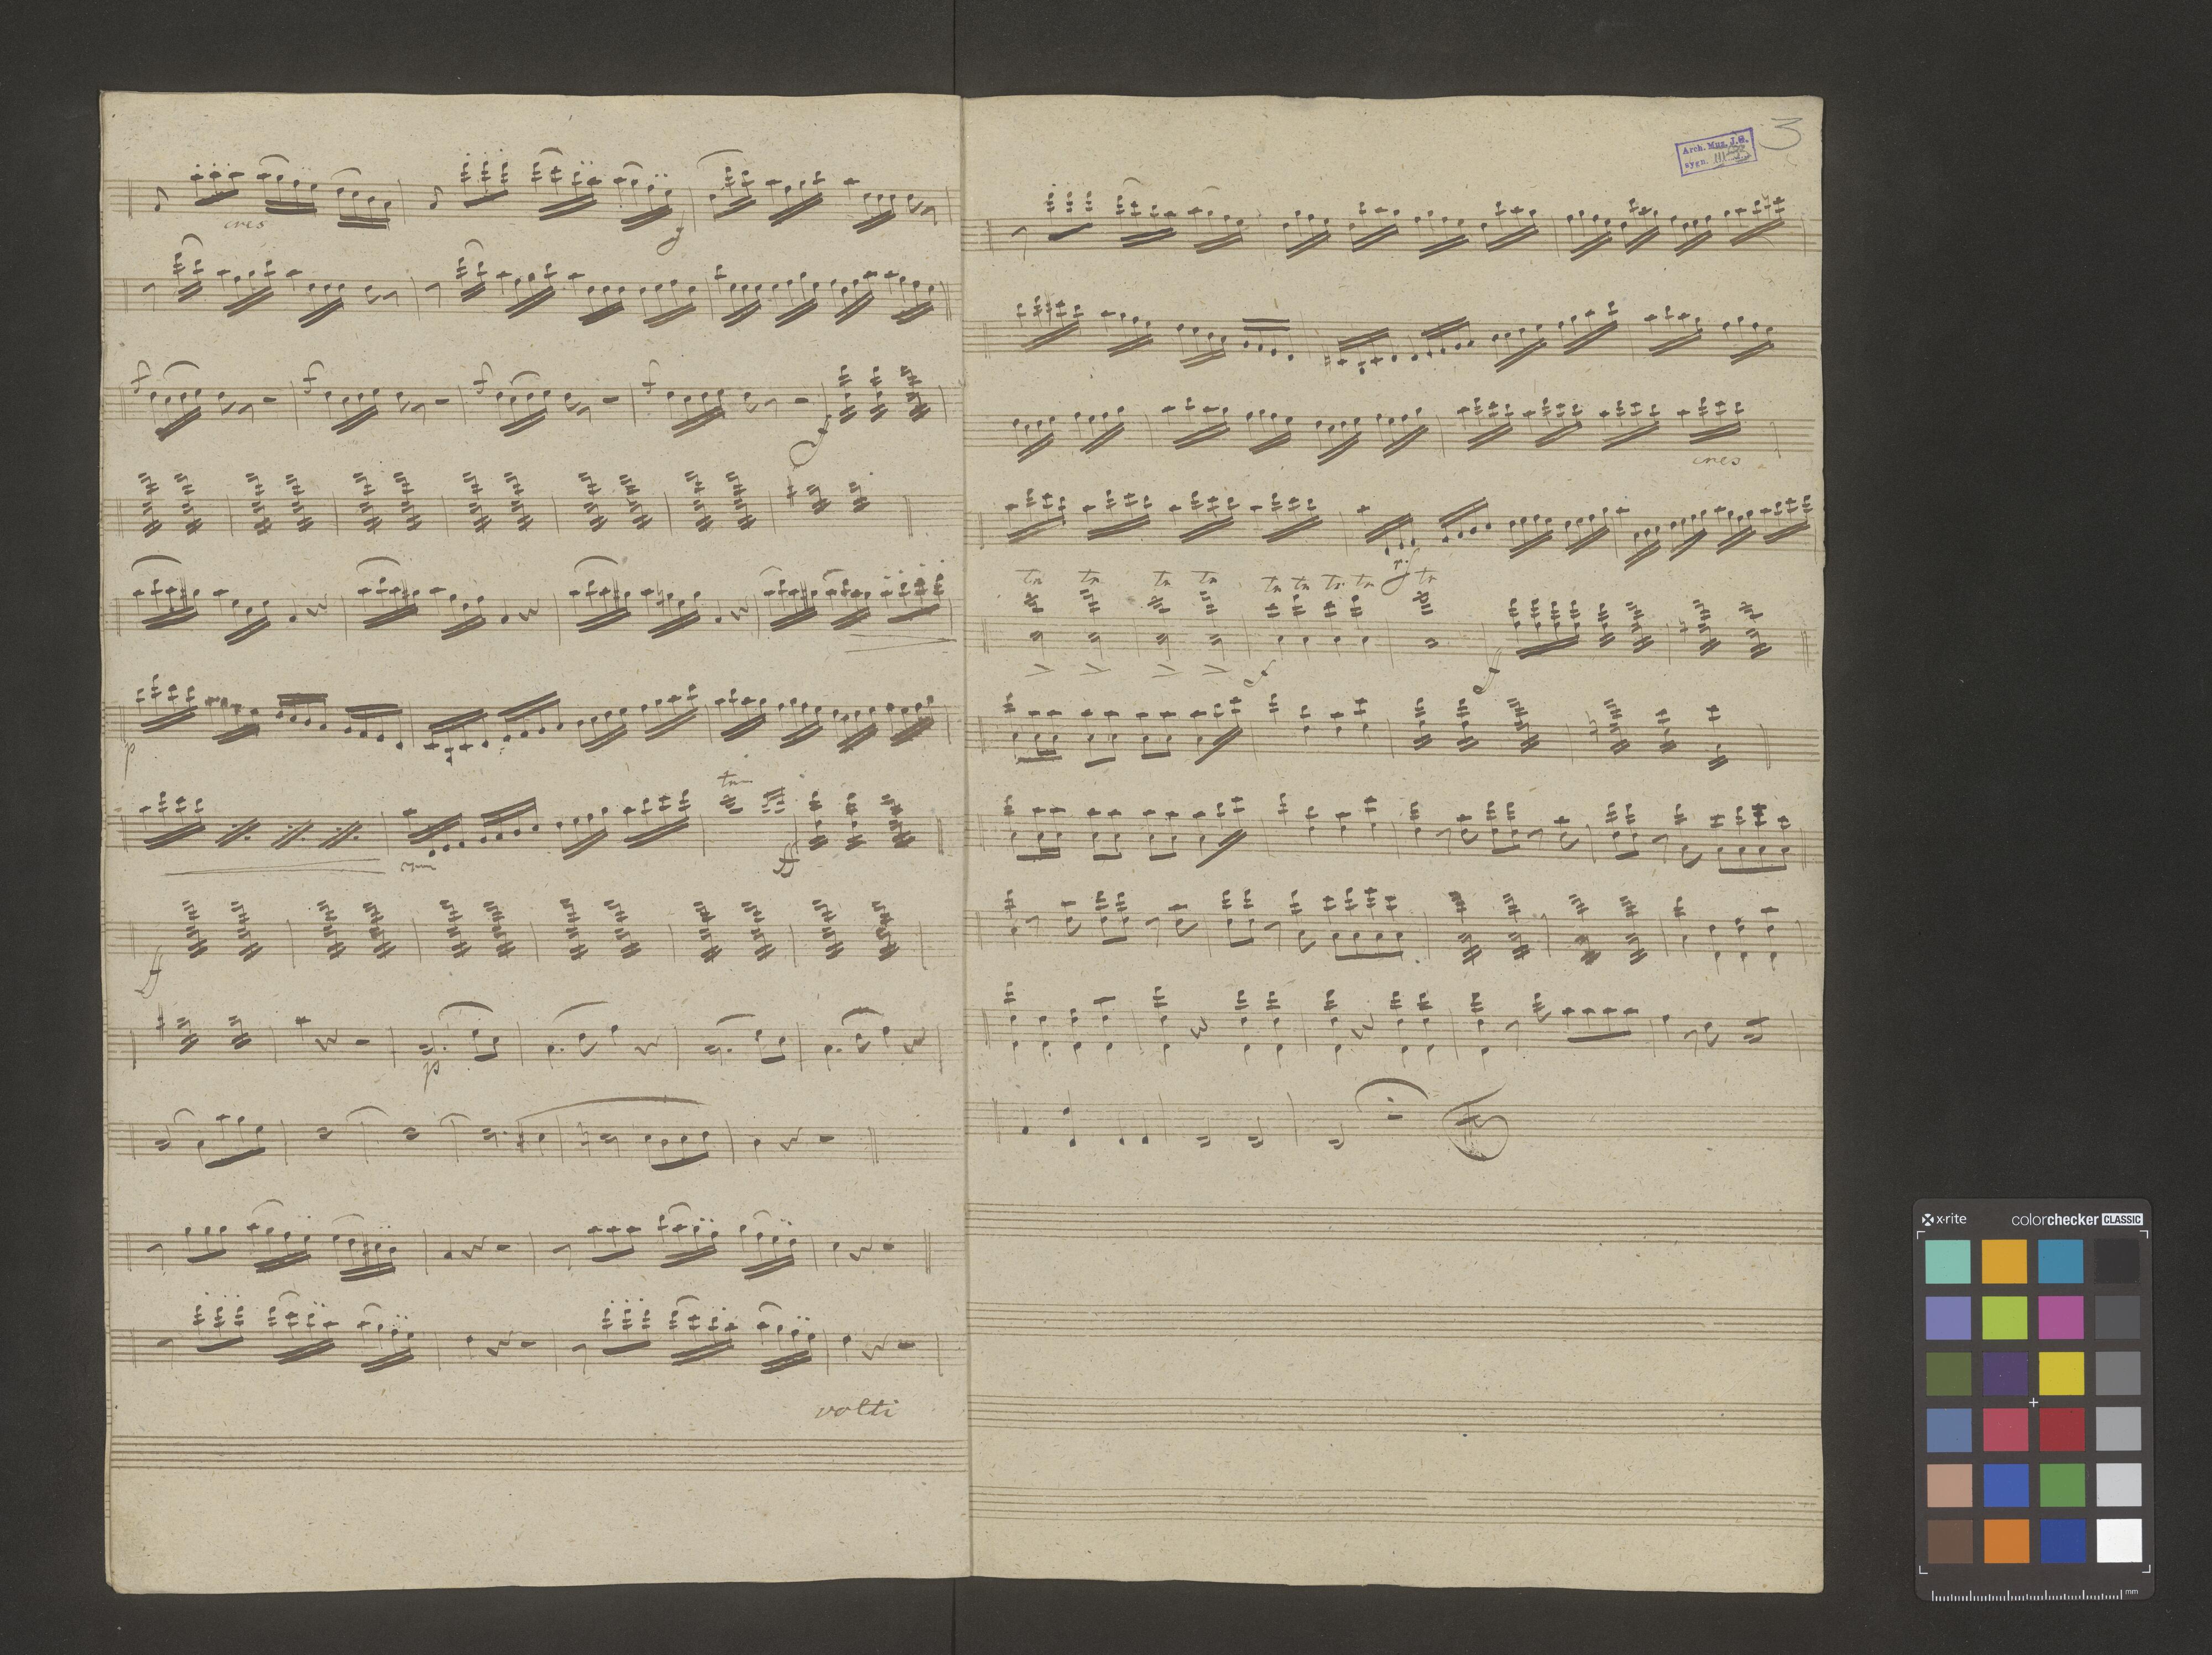 cres
f
f
f
f
f
ff
p
tr
cres
ff
ff
p
volti
Arch. Muz. J.G.
sygn. III
3
cres
rf
tr tr tr tr tr tr tr tr tr
ff
x-rite colorchecker CLASSIC
mm